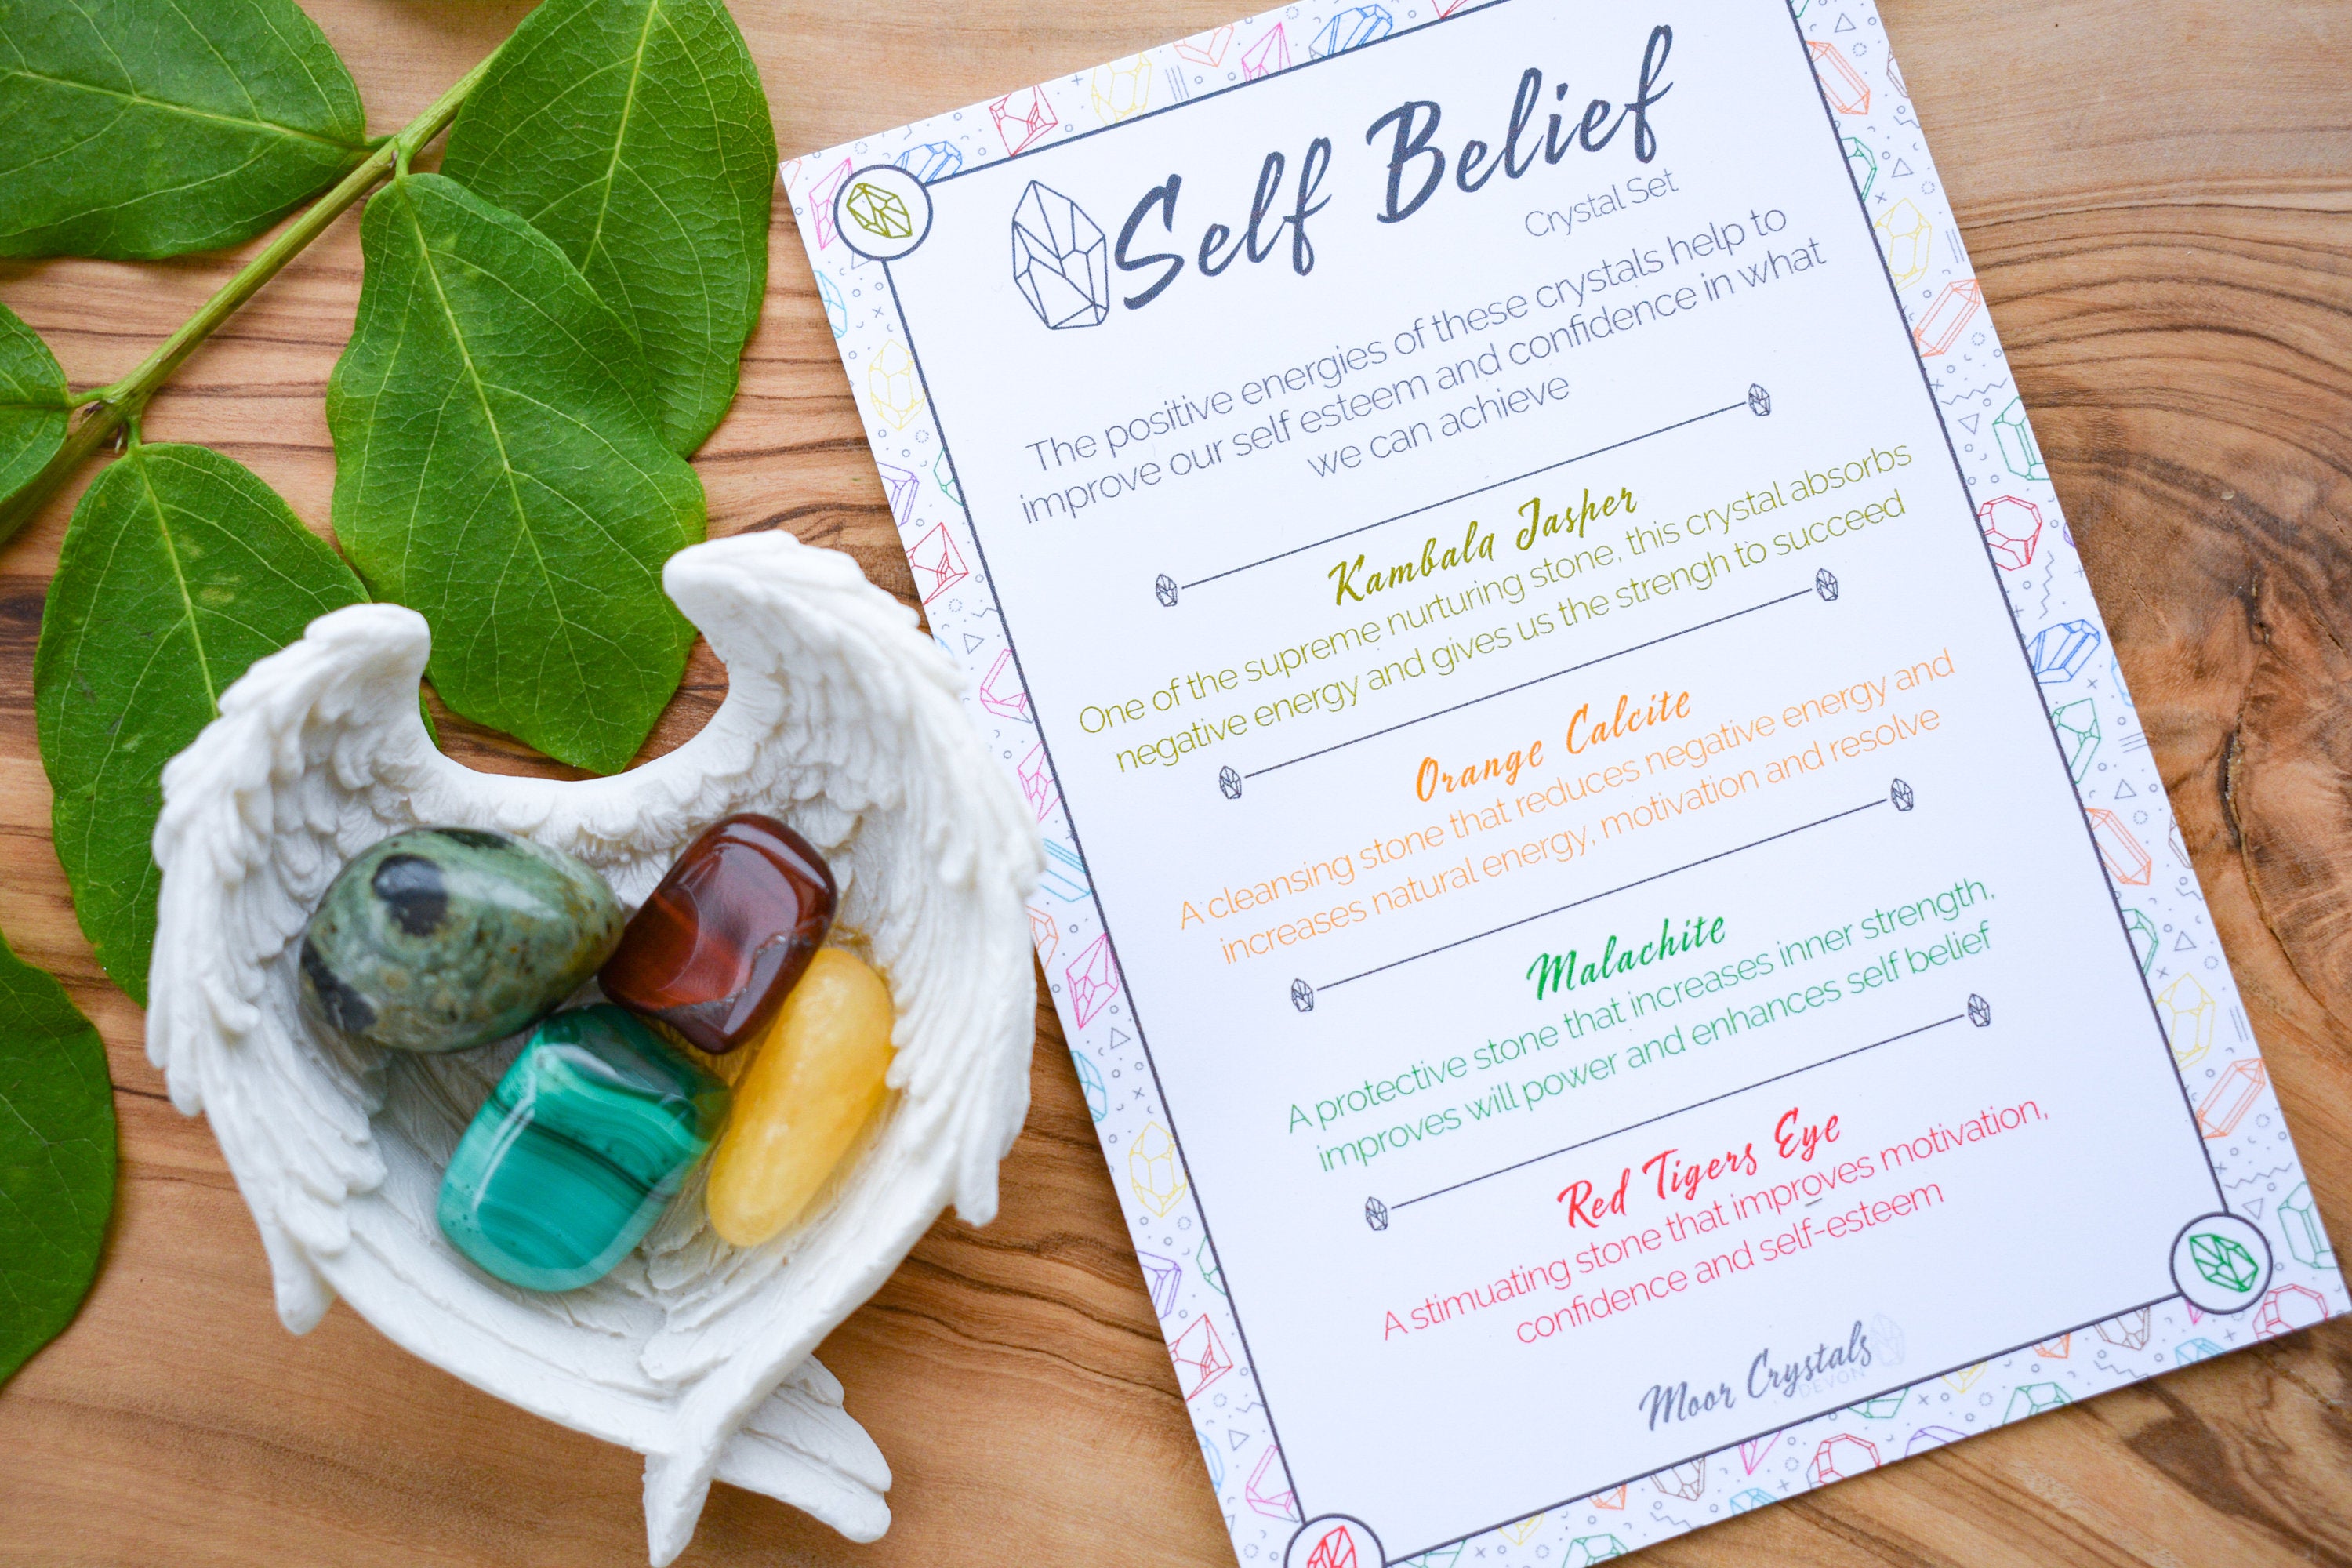 Self Belief
Crystal Set
The positive energies of these crystals help to
improve our self esteem and confidence in what
we can achieve
Kambala Jasper
One of the supreme nurturing stone, this crystal absorbs
negative energy and gives us the strengh to succeed
Orange Calcite
A cleansing stone that reduces negative energy and
increases natural energy, motivation and resolve
Malachite
A protective stone that increases inner strength,
improves will power and enhances self belief
Red Tigers Eye
A stimuating stone that improves motivation,
confidence and self-esteem
Moor Crystals
DEVON